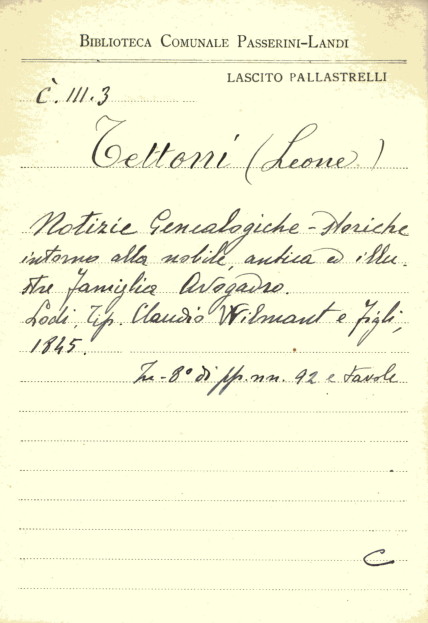 BIBLIOTECA COMUNALE PASSERINI-LANDI
LASCITO PALLASTRELLI
Č. III. 3
Tettoni (Leone)
Notizie Genealogiche-Storiche
intorno alla nobile, antica ed illu-
stre famiglia Avogadro.
Lodi, Tip. Claudio Wilmant e figli,
1845.
In-8° di pp. nn. 92 e tavole
C